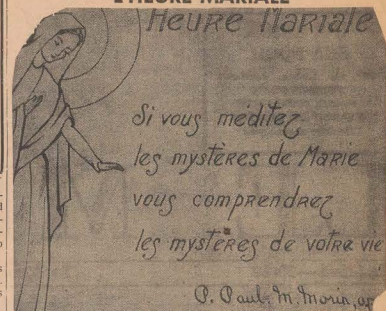 L'HEURE MARIALE
Heure Mariale
Si vous méditez
les mystères de Marie
vous comprendrez
les mystères de votre vie
P. Paul. M. Morin,